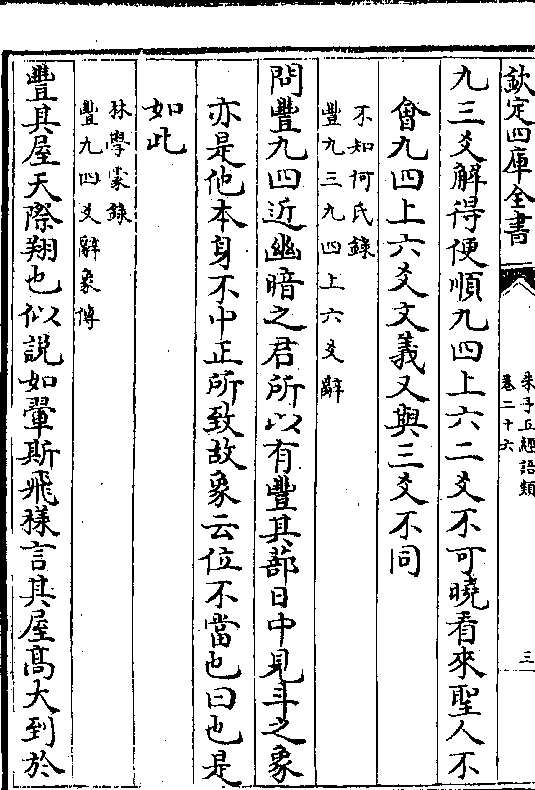 欽定四庫全書
朱子五經語類
卷二十六
三
九三爻解得便順九四上六二爻不可曉看來聖人不
會九四上六爻文義又與三爻不同
不知何氏錄
豐九三九四上六爻辭
問豐九四近幽暗之君所以有豐其蔀日中見斗之象
亦是他本身不中正所致故象云位不當也曰也是
如此
林學蒙錄
豐九四爻辭象傳
豐其屋天際翔也似説如翬斯飛様言其屋髙大到於